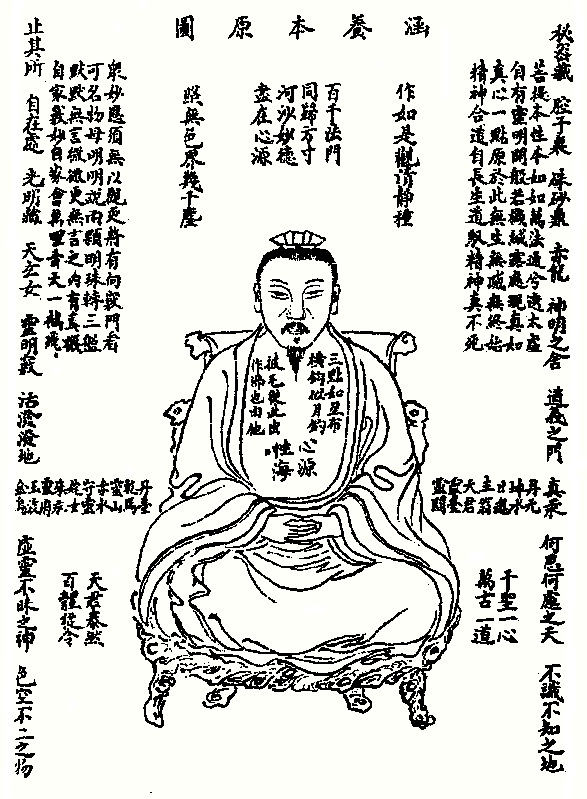 涵養本原圖
秘密藏 腔子裏 硃砂鼎 赤龍 神明之舍 道義之門 真汞 何思何慮之天 不識不知之地
菩提本性本如如萬法通兮遶太虛
自有靈明開般若機緘露處現真如
真心一點原於此無生無滅無終始
精神合道自長生道馭精神真不死
作如是觀清靜種
百千法門
同歸方寸
河沙妙德
盡在心源
照無色界幾千塵
衆妙應須無以觀定將有向竅門看
可名物母明明說兩顆明珠轉三盤
默默無言微微更無言之內有真機
自家義妙自家會萬里青天一鶴飛
止其所 自在處 光明藏 天玄女 靈明竅 活潑潑地 虛靈不昧之神 色空不二之物
三點如星布
橫鉤似月
披毛從此出
作佛也由他
心源
性海
丹元
主翁
天君
靈臺
靈關
千聖一心
萬古一道
丹臺
乾馬
靈山
赤水
守靈
姹女
玉液
金烏
天君泰然
百體從令